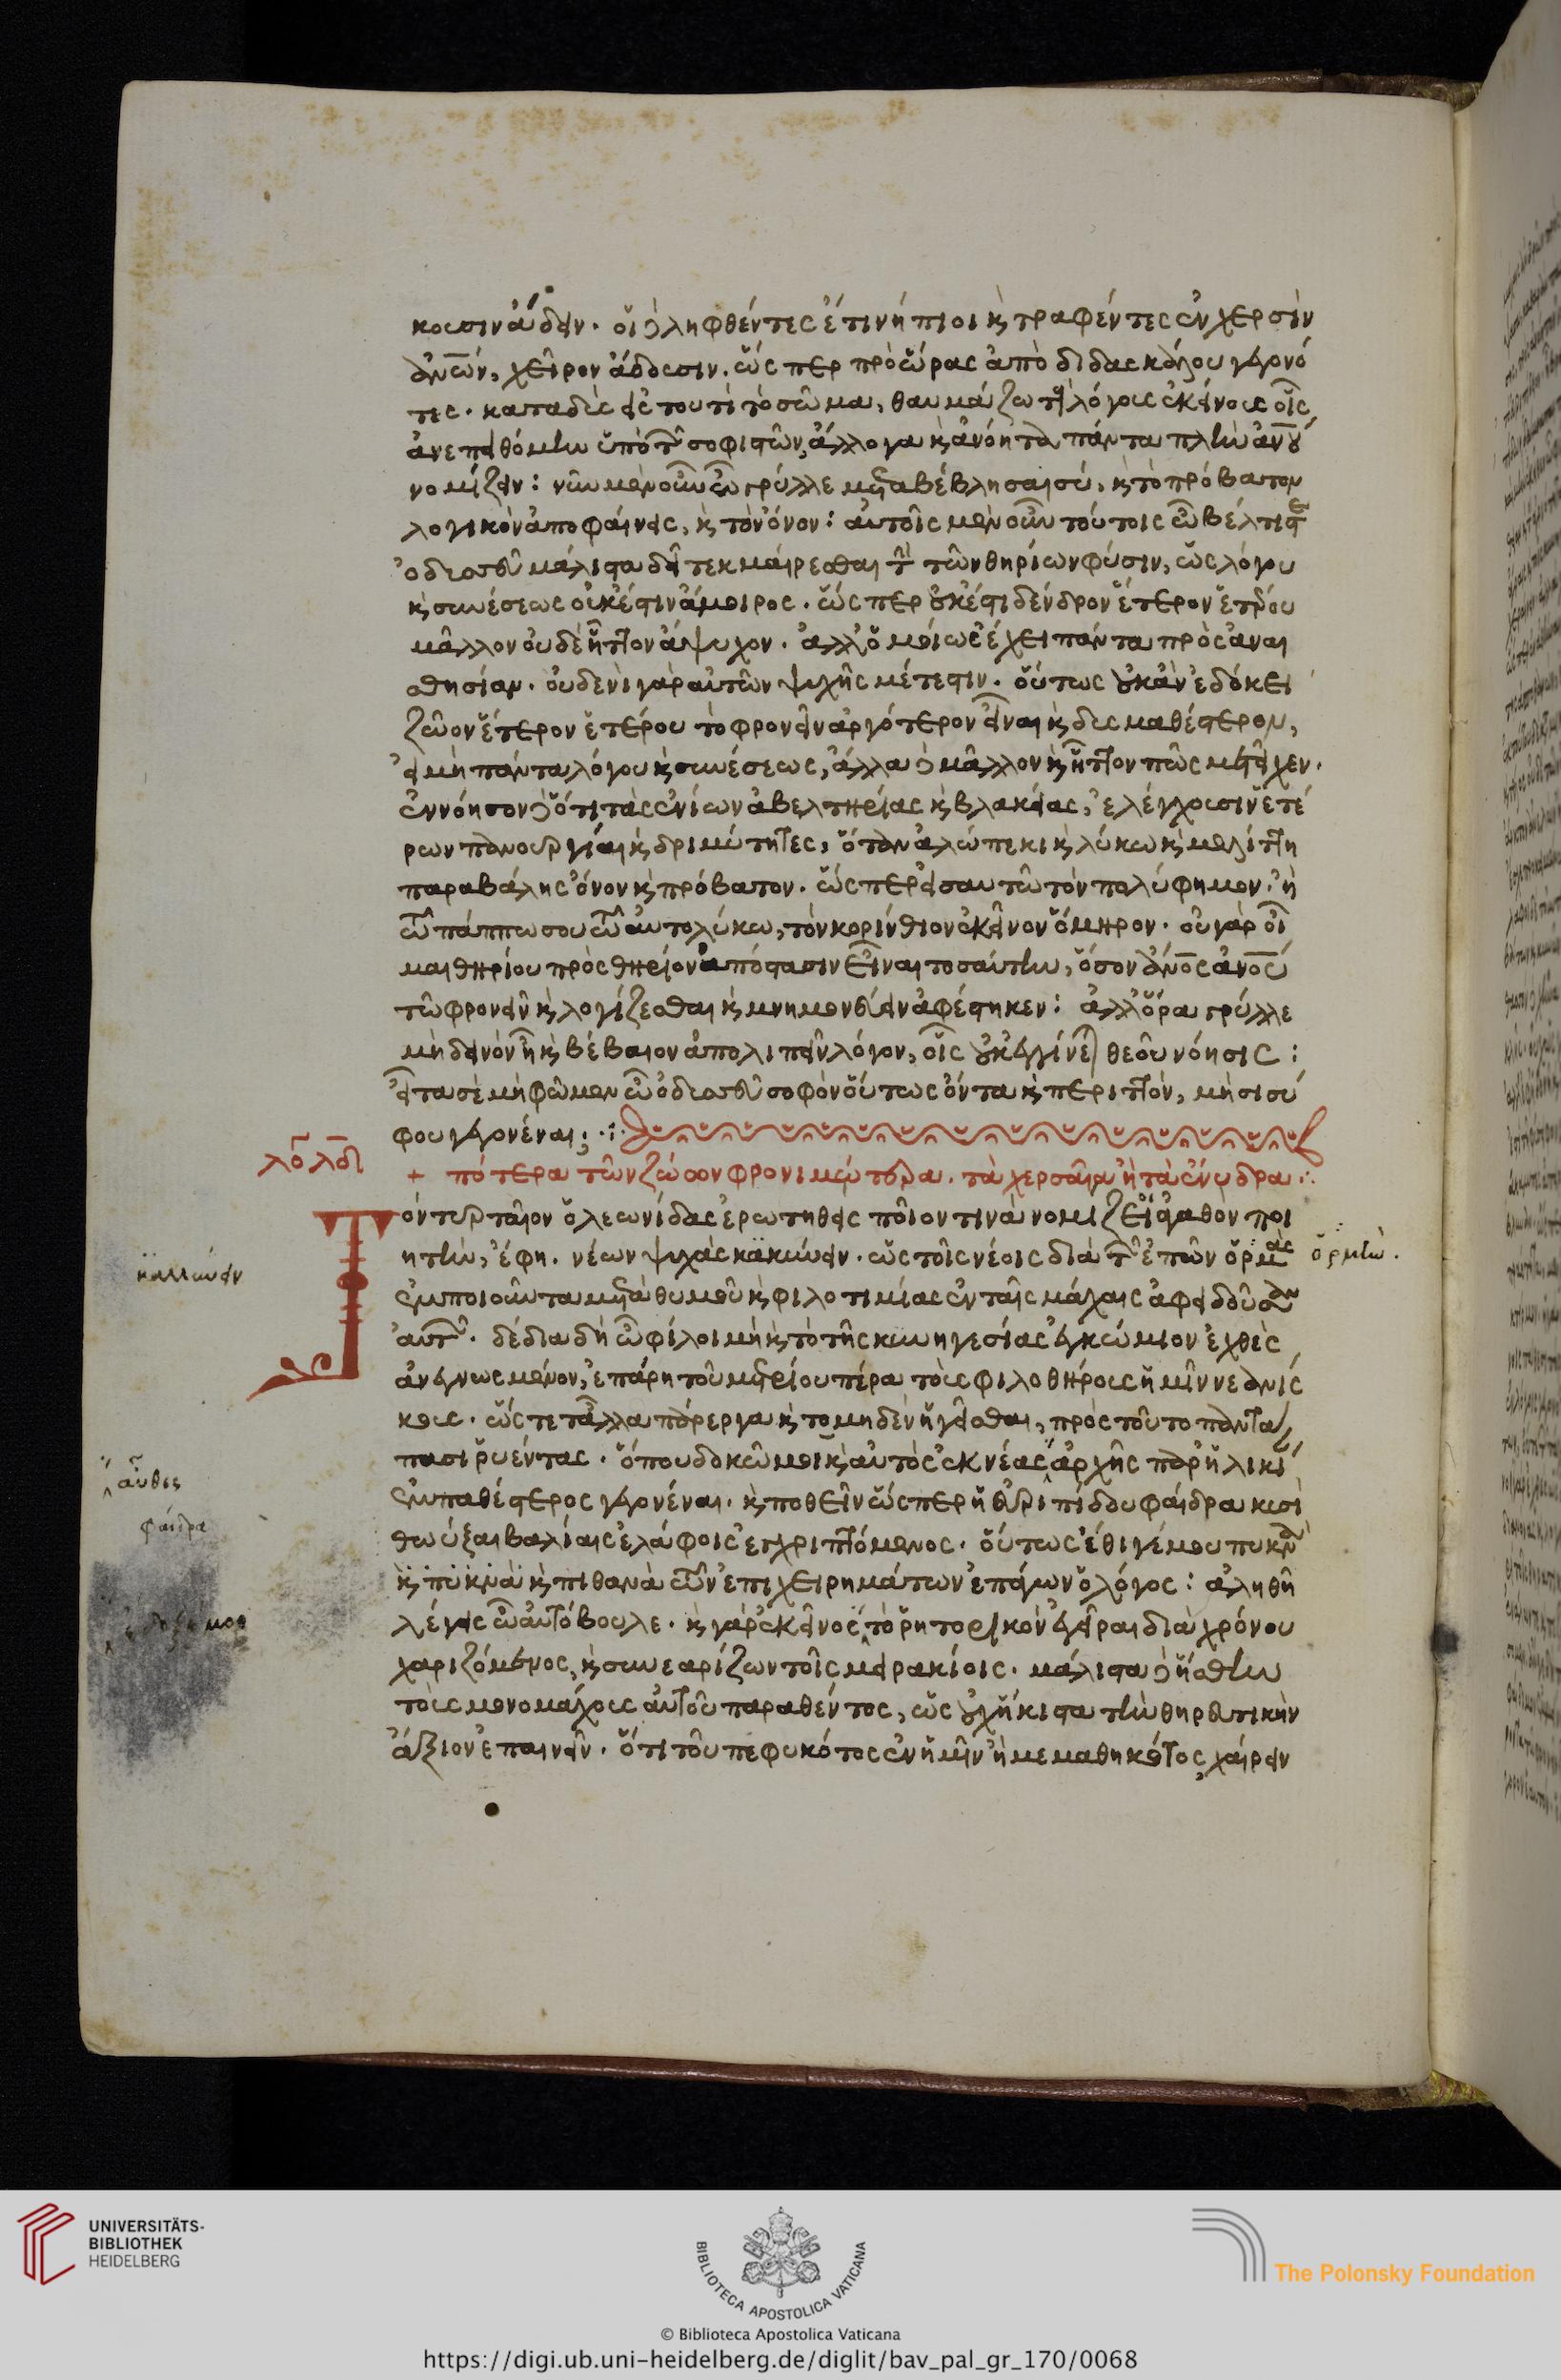 κουσιν ἄδειν. οἱ δὲ ληφθέντες ἔτι νήπιοι καὶ τραφέντες ἐν χερσὶν
ἀνων, χεῖρον ἄδουσιν. ὥσπερ πρὸ ὥρας ἀπὸ διδασκάλου γεγονό
τες. καταδὺς δὲ τουτὶ τὸ σῶμα, θαυμάζω τῶν λόγους ἐκείνους οἷς
ἀνεπειθόμην ὑπὸ τῶν σοφιστῶν, ἄλλογα καὶ ἀνόητα πάντα πλὴν ἀνου
νομίζειν: νῦν μὲν οὖν ὦ γρύλλε μεταβέβλησαι σύ, καὶ τὸ πρόβατον
λογικὸν ἀποφαίνεις, καὶ τὸν ὄνον: αὐτοῖς μὲν οὖν τούτοις ὦ βέλτιστε
ὀδυσσεῦ μάλιστα δεῖ τεκμαίρεσθαι τὴν τῶν θηρίων φύσιν, ὡς λόγου
καὶ συνέσεως οὐκ ἔστιν ἄμοιρος. ὥσπερ οὐκ ἔστι δένδρον ἕτερον ἑτέρου
μᾶλλον οὐδὲ ἧττον ἄψυχον. ἀλλ' ὁμοίως ἔχει πάντα πρὸς ἀναι
σθησίαν. οὐδενὶ γὰρ αὐτῶν ψυχῆς μέτεστιν. οὕτως οὐκ ἂν ἐδόκει
ζῶον ἕτερον ἑτέρου τὸ φρονεῖν ἀργότερον εἶναι καὶ δυσμαθέστερον,
εἰ μὴ πάντα λόγου καὶ συνέσεως, ἄλλα δὲ μᾶλλον καὶ ἧττον πῶς μετεῖχεν.
ἐννόησον δὲ ὅτι τὰς ἐνίων ἀβελτηρίας καὶ βλακείας, ἐλέγχουσιν ἑτέ
ρων πανουργίαι καὶ δριμύτητες, ὅταν ἀλώπεκι καὶ λύκω καὶ μελίττη
παραβάλης ὄνον καὶ πρόβατον. ὥσπερ εἰ σαυτῶ τὸν πολύφημον. ἢ
τῶ πάππω σου τῶ αὐτολύκω, τὸν κορίνθιον ἐκεῖνον ὅμηρον. οὐ γὰρ οἶ
μαι θηρίου πρὸς θηρίον ἀπόστασιν εἶναι τοσαύτην, ὅσον ἀνος ἀνου
τῶ φρονεῖν καὶ λογίζεσθαι καὶ μνημονεύειν ἀφέστηκεν: ἀλλ' ὅρα γρύλλε
μὴ δεινὸν ἦ καὶ βέβαιον ἀπολιπεῖν λόγον, οἷς οὐκ ἐγγίνεται θεοῦ νόησις:
εἶτα σὲ μὴ φῶμεν ὦ ὀδυσσεῦ σοφὸν οὕτως ὄντα καὶ περιττὸν, μὴ σισύ
φου γεγονέναι;
λο λδι
+ πότερα τῶν ζώων φρονιμώτερα. τὰ χερσαῖα ἢ τὰ ἔνυδρα
Τὸν τυρταῖον ὁ λεωνίδας ἐρωτηθεὶς ποῖόν τινα νομίζει ἀγαθον ποι
ητὴν, ἔφη. νέων ψυχὰς κακκύνειν. ὡς τοῖς νέοις διὰ τῶν ἐπῶν ὁρμὰς
ὁρμὴν.
καλλύνειν
ἐμποιοῦντα μετὰ θυμοῦ καὶ φιλοτιμίας ἐν ταῖς μάχαις ἀφειδοῦσαν
αὐτῶν. δέδια δὴ ὦ φίλοι μὴ καὶ τὸ τῆς κυνηγεσίας ἐγκώμιον ἐχθὲς
ἀνεγνωσμένον, ἐπάρη τοῦ μετρίου πέρα τοὺς φιλοθήρους ἡμῖν νεανίσ
κους. ὥστε τἄλλα πάρεργα καὶ το μηδὲν ἡγεῖσθαι, πρὸς τοῦτο παντά
πασι ῥυέντας. ὅπου δοκῶ μοι καὶ αὐτὸς ἐκ νέας ἀρχῆς παρ' ἡλικί
αὖθις
ἐμπαθέστερος γεγονέναι. καὶ ποθεῖν ὥσπερ ἡ εὐριπίδου φαίδρα κυσὶ
φαίδρα
θωΰξαι βαλίαις ἐλάφοις ἐγχριπτόμενος. οὕτως ἔθιγέ μου πυκνὰ
καὶ πυκνὰ καὶ πιθανὰ τῶν ἐπιχειρημάτων ἐπάγων ὁ λόγος: ἀληθῆ
λέγεις ὦ αὐτόβουλε. καὶ γὰρ ἐκεῖνος τὸ ῥητορικὸν ἐγεῖραι διὰ χρόνου
χαριζόμενος, καὶ συνεαρίζων τοῖς μειρακίοις. μάλιστα δὲ ἥσθην
τοὺς μονομάχους αὐτοῦ παραθέντος, ὡς οὐχ ἥκιστα τὴν θηρευτικὴν
ἄξιον ἐπαινεῖν. ὅτι τοῦ πεφυκότος ἐν ἡμῖν ἢ μεμαθηκότος χαίρειν
UNIVERSITÄTS-
BIBLIOTHEK
HEIDELBERG
BIBLIOTECA APOSTOLICA VATICANA
The Polonsky Foundation
© Biblioteca Apostolica Vaticana
https://digi.ub.uni-heidelberg.de/diglit/bav_pal_gr_170/0068